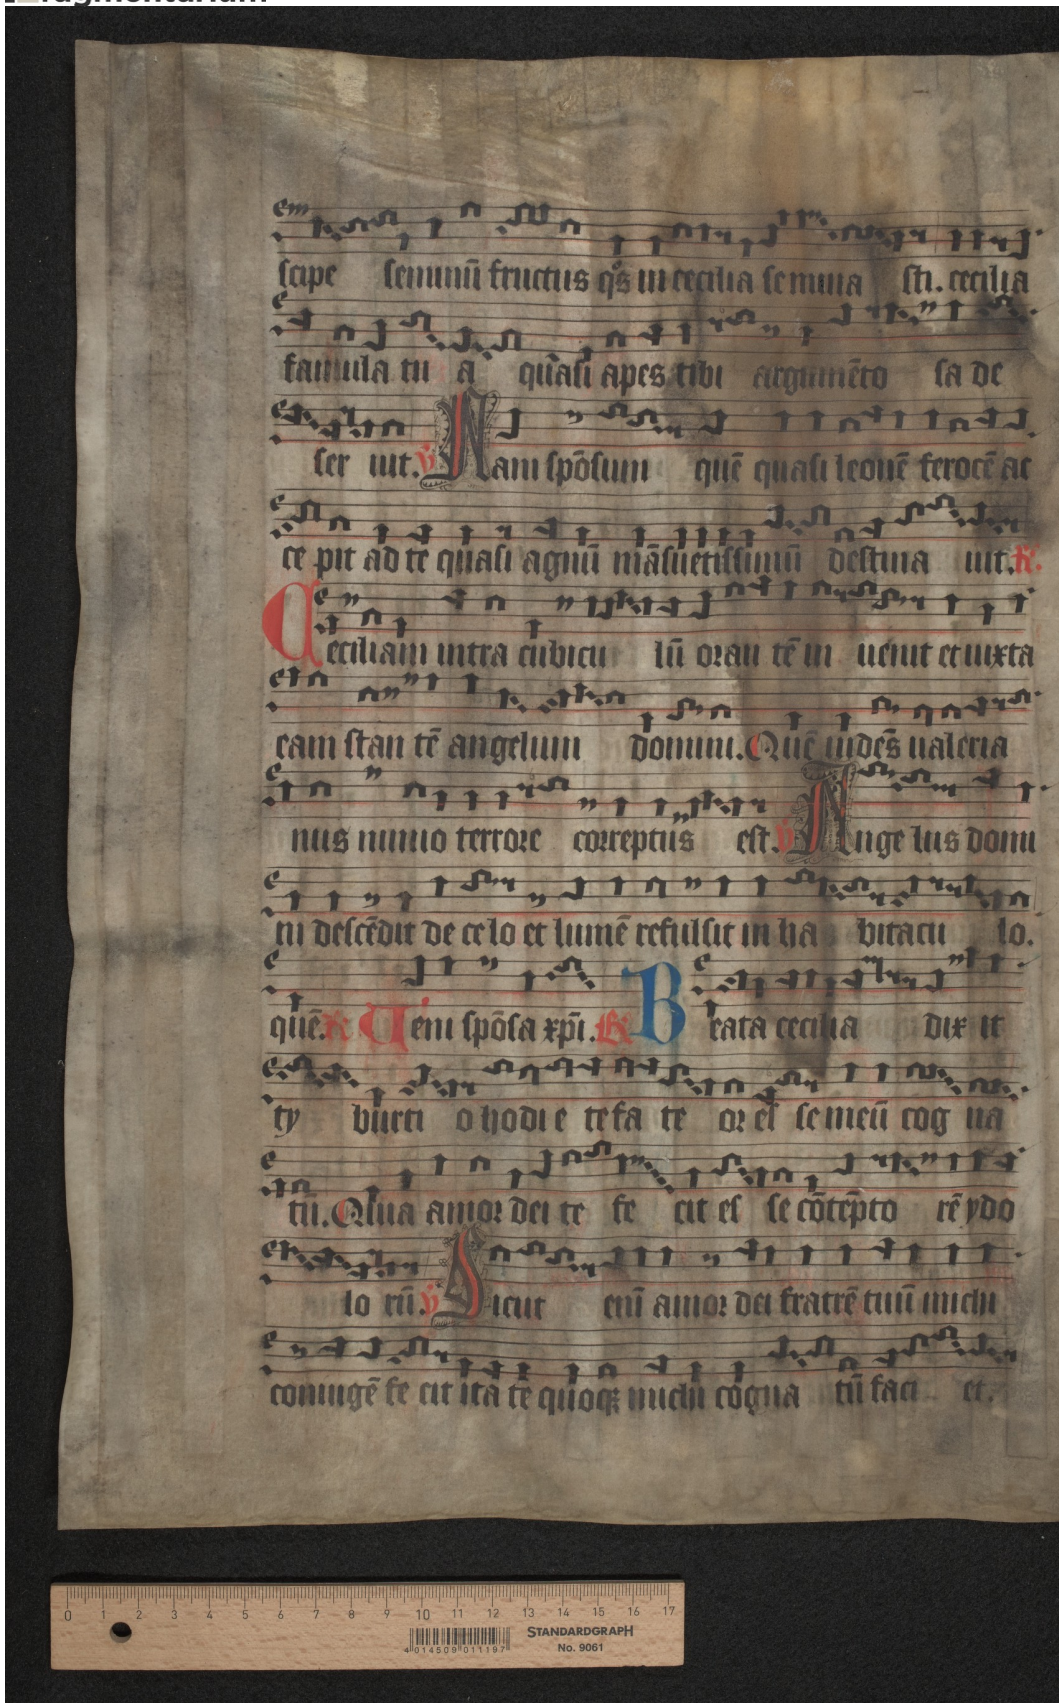 scipe seminū fructus qͦs in cecilia semina sti. cecilia
famula tu a quasi apes tibi argumēto sa de
ser uit. ℣ Nam spōsum quē quasi leonē ferocē ac
ce pit ad te quasi agnū māsuetissimū destina uit. ℟.
Ceciliam intra cubicu lū oran tē in uenit et iuxta
eam stan tē angelum domini. Quē uidēs ualeria
nus nimio terrore correptus est. ℣ Ange lus domi
ni descēdit de celo et lumē refulsit in ha bitacu lo.
quē. ℟ Ueni spōsa xp̄i. ℟ Beata cecilia dix it
ty burti o hodi e te fa te or eſ se meū cog na
tū. Quia amor dei te fe cit eſ se cōtēpto rē ydo
lo rū. ℣ Sicut eni amor dei fratrē tuū michi
coniugē fe cit ita te quoqꝫ michi cogna tū faci et.
0 1 2 3 4 5 6 7 8 9 10 11 12 13 14 15 16 17
STANDARDGRAPH
No. 9061
4 014509 011197